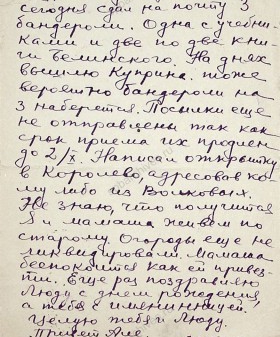 сегодня сдал на почту 3
бандероли. Одна с учебни-
ками и две по две кни-
ги Белинского. На днях
вышлю Куприна. тоже
вероятно бандероли на
3 наберется. Посылки еще
не отправлены так как
срок приема их продлен
до 2/X. Написал открытку
в Королево, адресовав ко-
му либо из Волковых.
Не знаю, что получится
Я и мамаша живем по
старому. Огороды еще не
ликвидировали. Мамаша
беспокоится как ей привез-
ти. Еще раз поздравляю
Люду с днем рождения,
а тебя с именинницей.
Целую тебя и Люду.
Привет